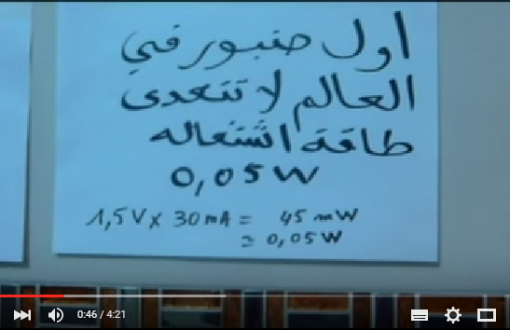 اول صنبور في
العالم لا تتعدى
طاقة اشتعاله
0,05W
1,5V x 30mA = 45 mW
≃ 0,05W
0:46 / 4:21